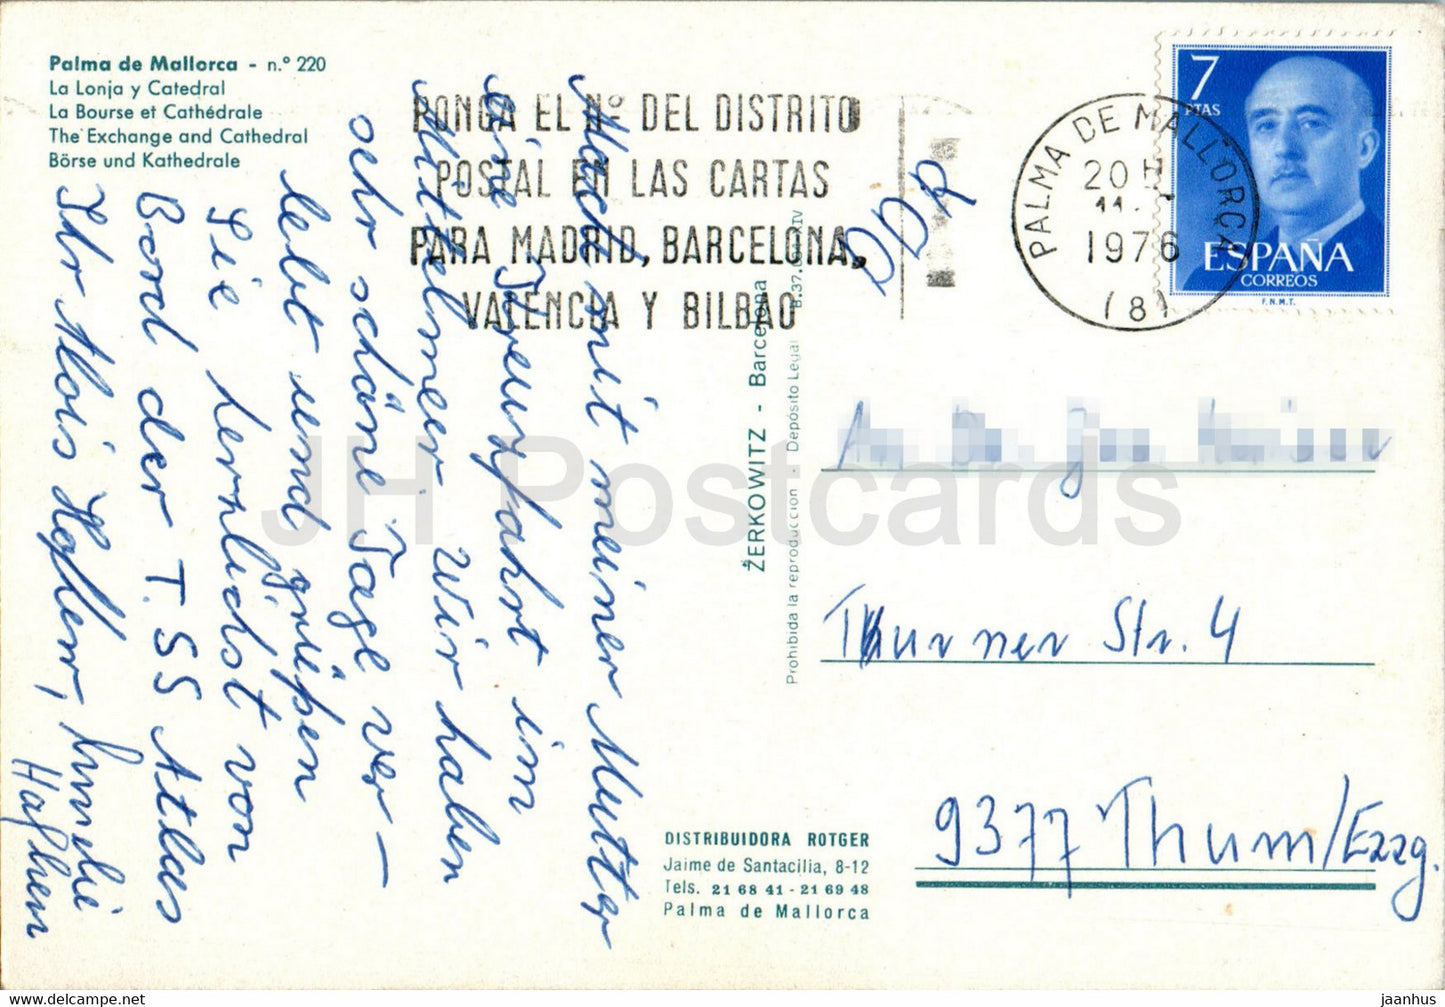 Palma de Mallorca - n.º 220
La Lonja y Catedral
La Bourse et Cathédrale
The Exchange and Cathedral
Börse und Kathedrale
PONGA EL Nº DEL DISTRITO
POSTAL EN LAS CARTAS
PARA MADRID, BARCELONA,
VALENCIA Y BILBAO
PALMA DE MALLORCA
20 H
1976
(8)
7
PTAS
ESPAÑA
CORREOS
F.N.M.T.
mit meiner Mutter
eine Kreuzfahrt im
Mittelmeer. Wir haben
sehr schöne Tage ver-
lebt und grüßen
Sie herzlichst von
Bord der T.SS Atlas
Ihr Alois
ZERKOWITZ - Barcelona
Prohibida la reproduccion - Depósito Legal B.37. IV
Thurner Str. 4
9377 Thum/Erzg.
DISTRIBUIDORA ROTGER
Jaime de Santacilia, 8-12
Tels. 21 68 41 - 21 69 48
Palma de Mallorca
JH Postcards
www.delcampe.net
jaanhus